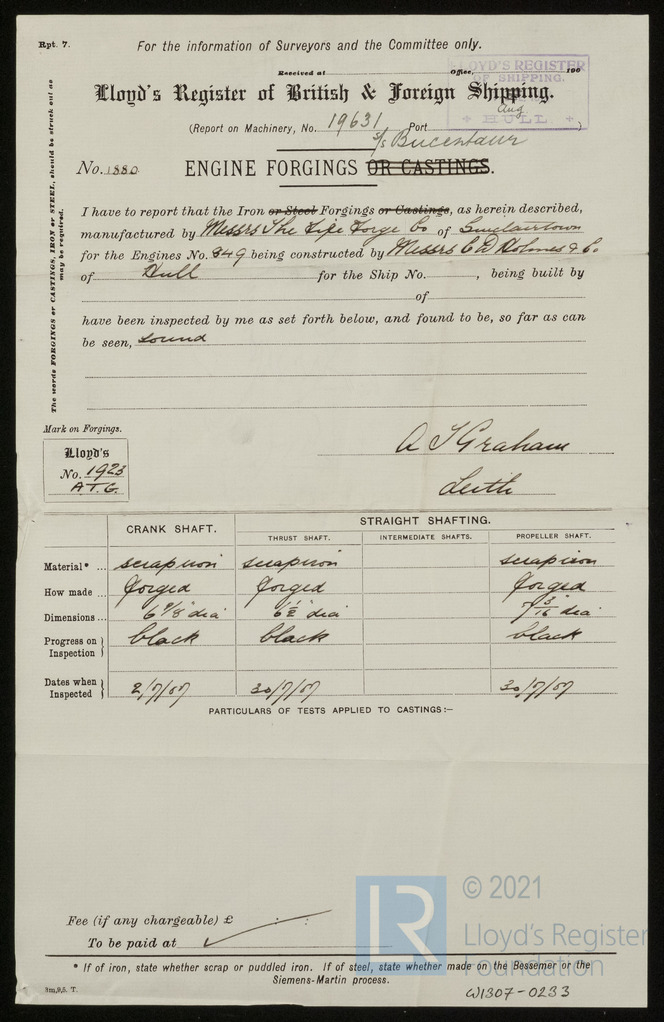 Rpt. 7.
For the information of Surveyors and the Committee only.
Received at Office, 190
LLOYD'S REGISTER
OF SHIPPING.
Aug
HULL
Lloyd's Register of British & Foreign Shipping.
(Report on Machinery, No. 19631 Port )
S/S Bucentaur
No. 1880 ENGINE FORGINGS OR CASTINGS.
The words FORGINGS or CASTINGS, IRON or STEEL, should be struck out as
may be required.
I have to report that the Iron or Steel Forgings or Castings, as herein described,
manufactured by Messrs The Fife Forge Co of Sinclairtown
for the Engines No. 849 being constructed by Messrs C D Holmes & Co
of Hull for the Ship No. , being built by
of
have been inspected by me as set forth below, and found to be, so far as can
be seen, sound
Mark on Forgings.
Lloyd's
No. 1923
A.T.G.
A T Graham
Leith
CRANK SHAFT. STRAIGHT SHAFTING.
THRUST SHAFT. INTERMEDIATE SHAFTS. PROPELLER SHAFT.
Material* ... scrap iron scrap iron scrap iron
How made ... forged forged forged
Dimensions ... 6 7/8" dia 6 1/2" dia 7 3/16 dia
Progress on Inspection } black black black
Dates when Inspected } 2/7/07 30/7/07 30/7/07
PARTICULARS OF TESTS APPLIED TO CASTINGS:—
Fee (if any chargeable) £
To be paid at
* If of iron, state whether scrap or puddled iron. If of steel, state whether made on the Bessemer or the
Siemens-Martin process.
3m,9,5. T.
W1307-0233
LR
© 2021
Lloyd's Register
Foundation